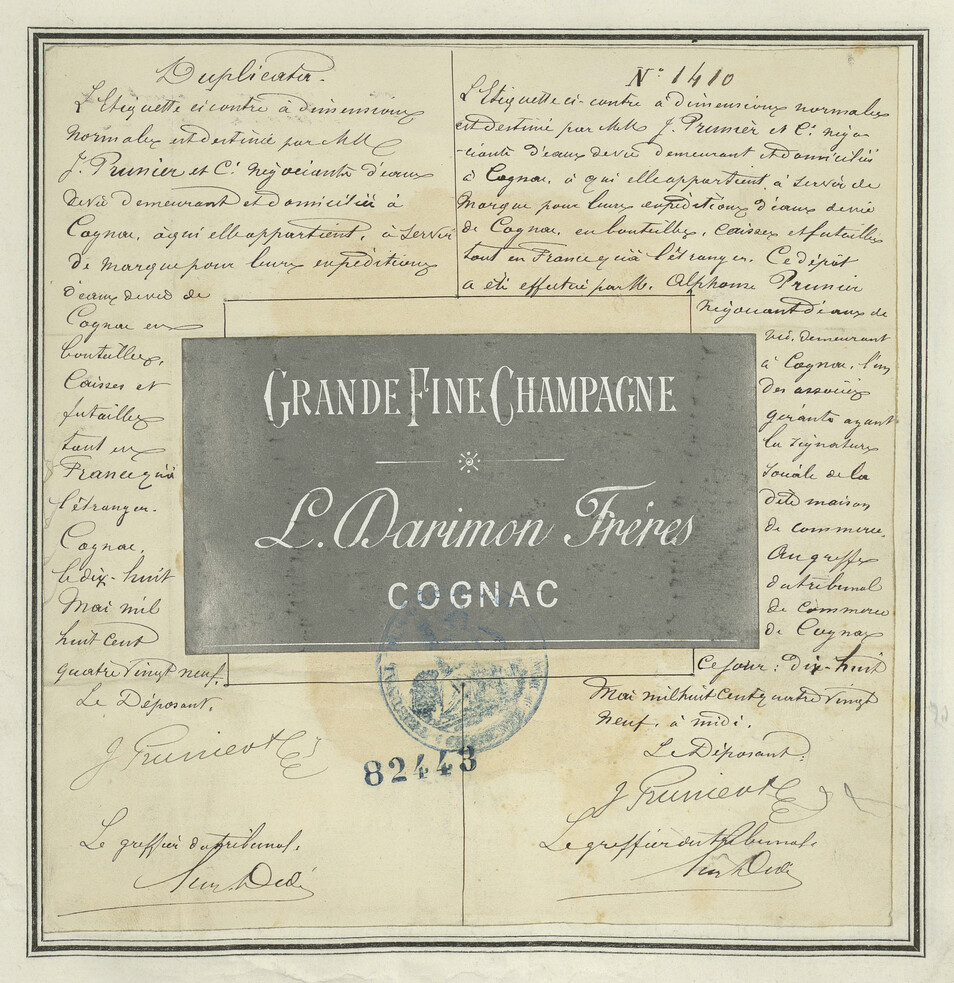 Duplicata.
L'Etiquette ci contre à dimensions
normales est destiné par MM
J. Prunier et Cie. Négociants d'eaux
devie demeurant et domiciliés à
Cognac, à qui elle appartient, à servir
de marque pour leurs expéditions
d'eaux devie de
Cognac en
bouteilles,
Caisses et
futailles
tant en
France qu'à
l'étranger.
Cognac,
le dix-huit
Mai mil
huit cent
quatre vingt neuf.
Le Déposant.
J Prunier & Cie
Le greffier du tribunal.
N° 1410
L'Etiquette ci-contre à dimensions normales
est destiné par MM J. Prunier et Cie. négo-
-ciants d'eaux devie demeurant et domiciliés
à Cognac, à qui elle appartient, à servir de
Marque pour leurs expéditions d'eaux devie
de Cognac, en bouteilles, Caisses et futailles
tant en France qu'à l'étranger. Ce dépôt
a été effectué par M. Alphonse Prunier
Négociant d'eaux de
vie, demeurant
à Cognac, l'un
des associés
gérants ayant
la signature
sociale de la
dite maison
de commerce.
Au greffe
du tribunal
de Commerce
de Cognac
Ce jour: dix-huit
Mai mil huit cent quatre vingt
neuf, à midi.
Le Déposant:
J Prunier & Cie
Le greffier du tribunal.
GRANDE FINE CHAMPAGNE
L. Darimon Fréres
COGNAC
82443